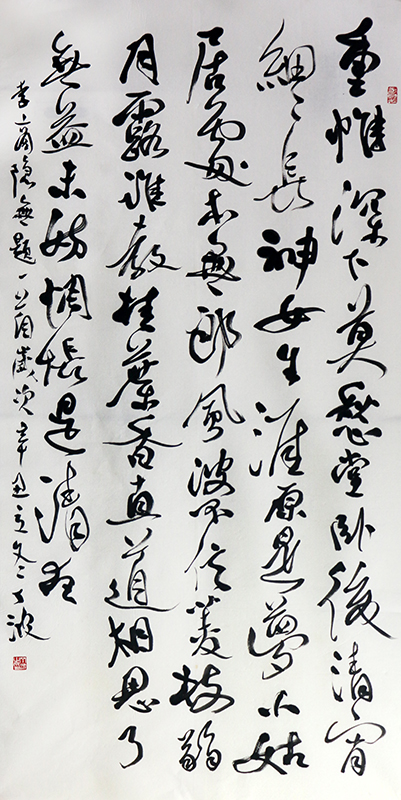 重帷深下莫愁堂卧後清宵
細〻長神女生涯原是夢小姑
居處本無郎風波不信菱枝弱
月露誰教桂葉香直道相思了
無益未妨惆悵是清狂
李商隱無題一首歲次辛丑立冬波